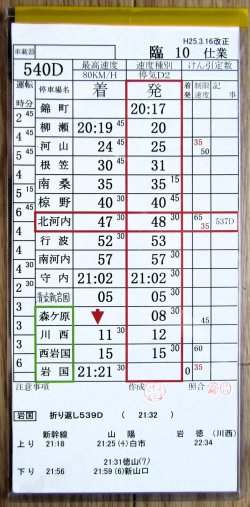 H25.3.16改正
車載器 臨 10 仕業
540D 最高速度 80KM/H 速度種別 停気D2 けん引定数
運転時分 停車場名 着 発 着発 制限速度 記事
錦町 20:17
2 45 柳瀬 20:19 45 20
4 45 河山 24 45 25 35 50
5 45 根笠 30 45 31
4 南桑 35 35 15
5 椋野 40 40 45
北河内 47 30 48 30 65 35 537D
行波 52 53
南河内 57 57 30
守内 21:02 21:02
05 05
森ケ原 08 30 45
川西 11 30 12
3 西岩国 15 30 15 30 60
岩国 21:21 30 0 35
注意事項 作成 照合
岩国 折り返し539D ( 21:32 )
新幹線 山陽 岩徳(川西)
上り 21:18 21:25(4)白市 22:34
21:31徳山(7)
下り 21:56 21:59(6)新山口